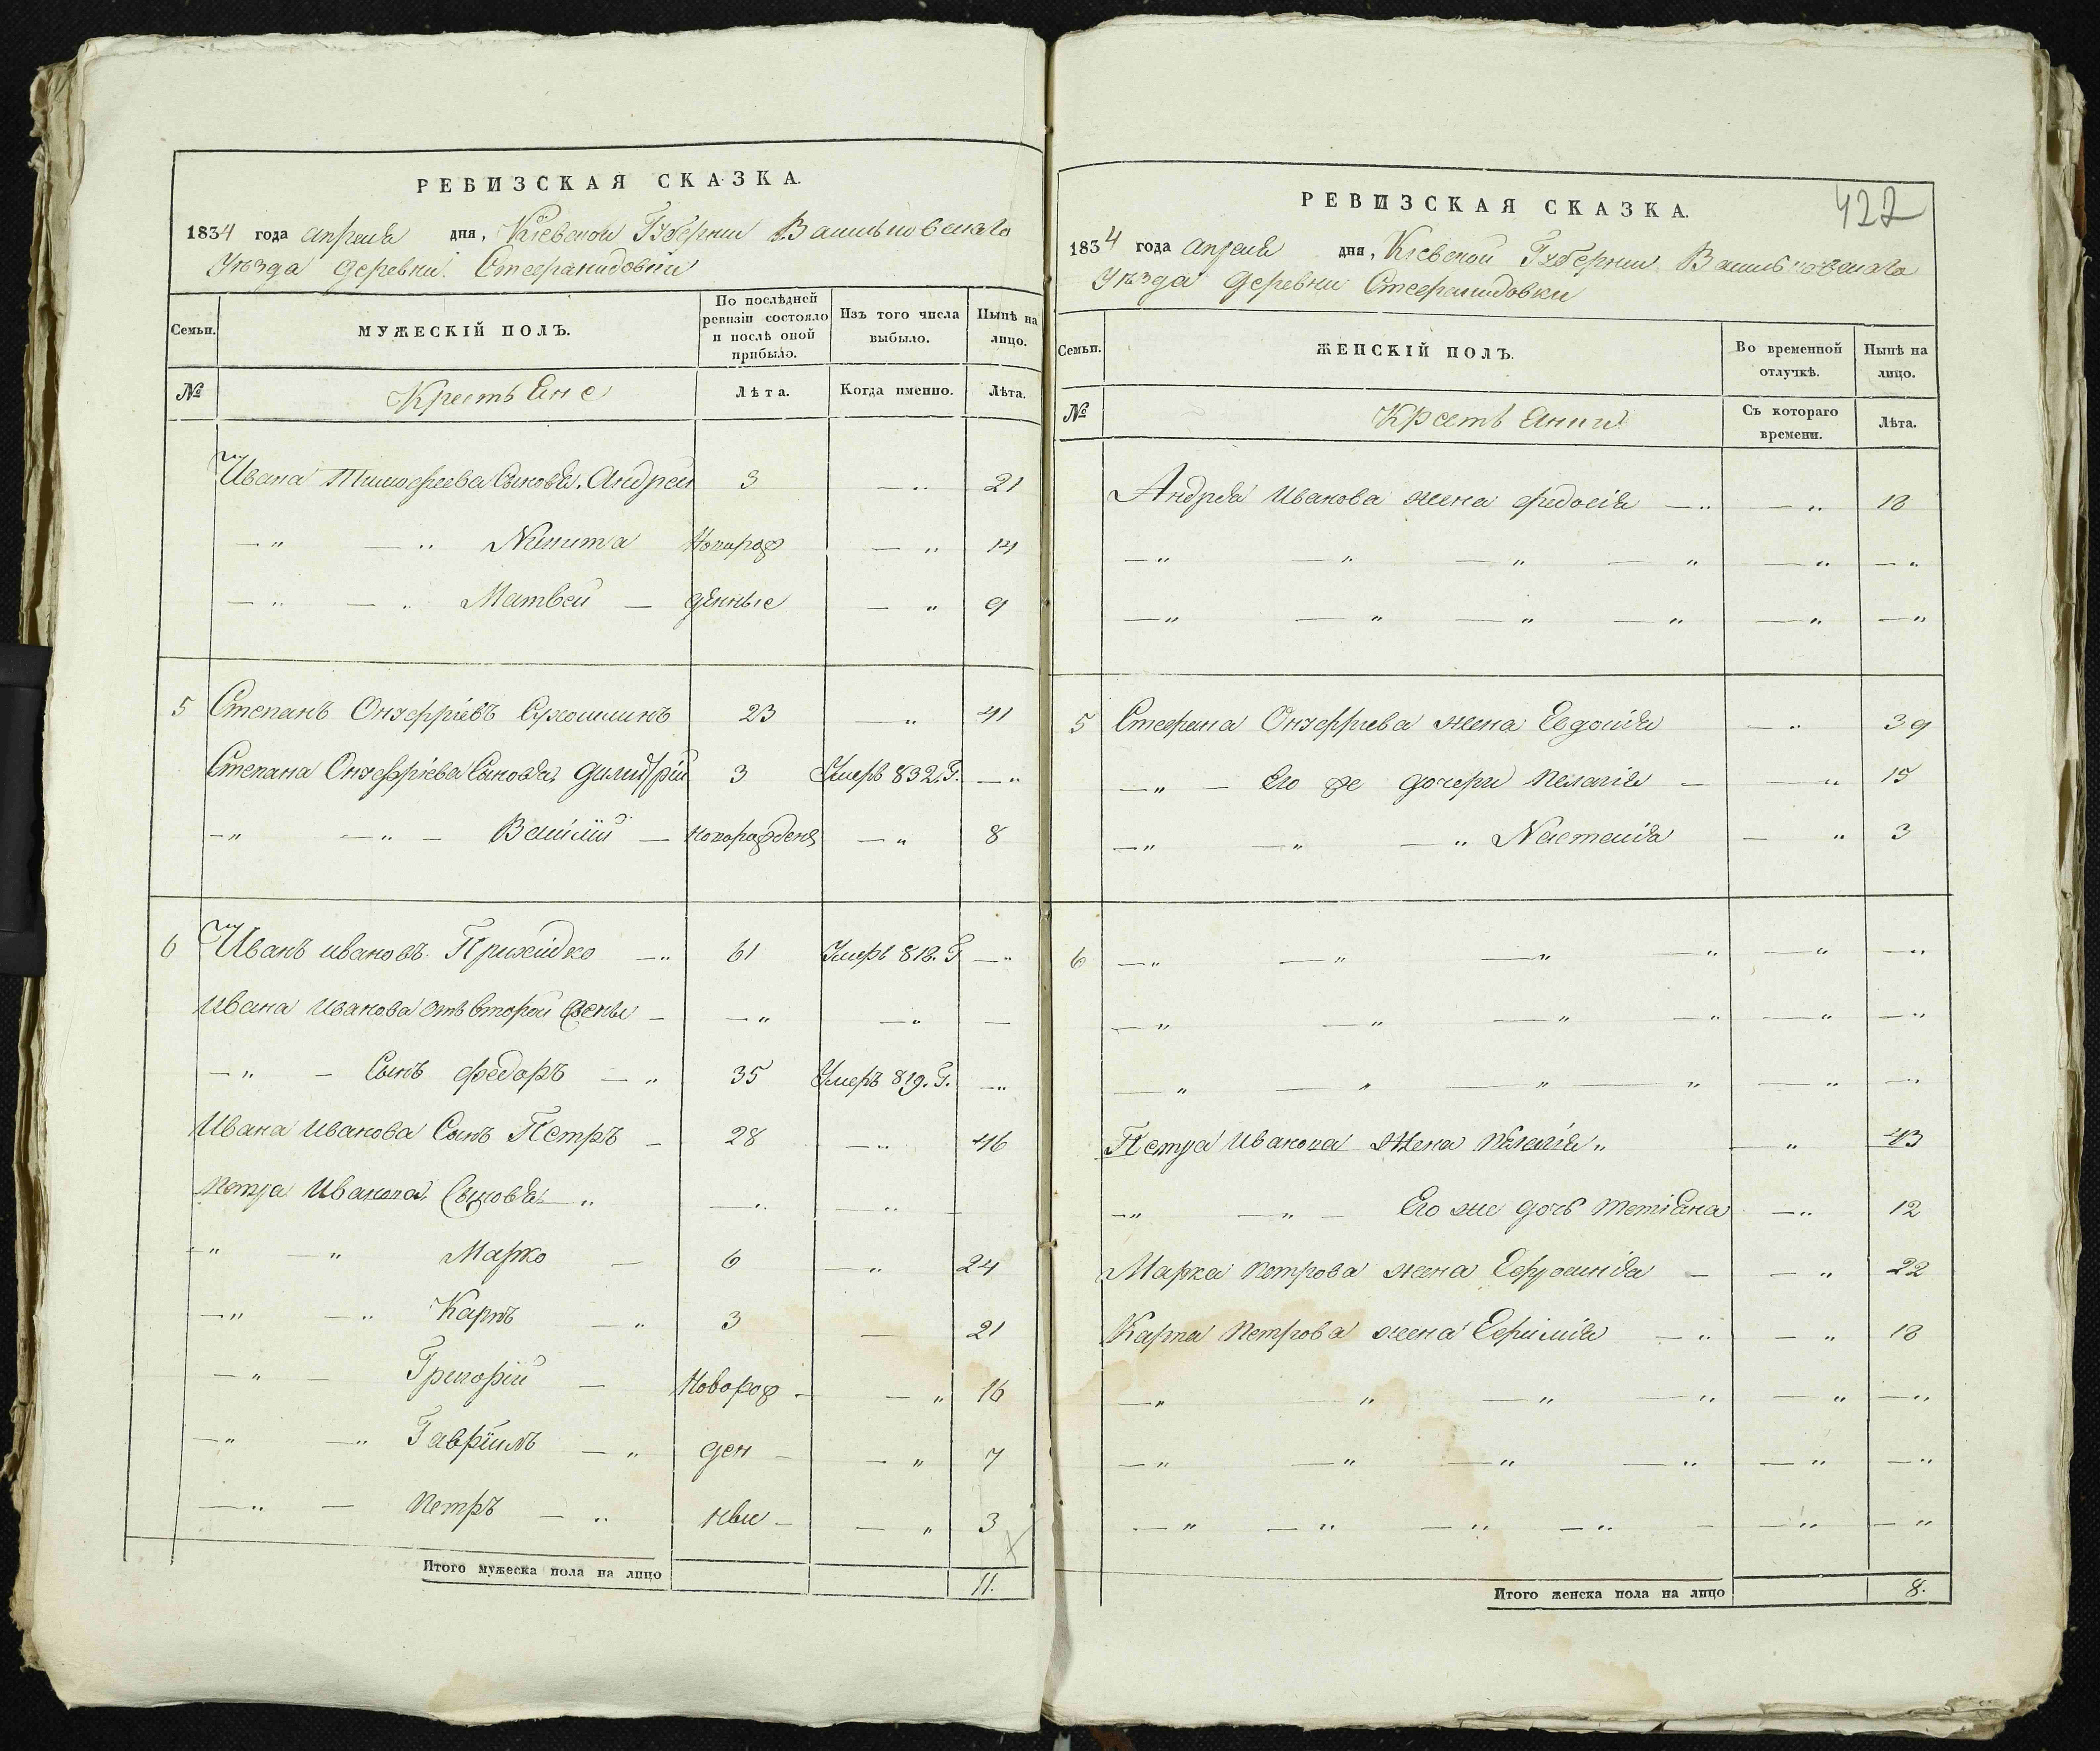 РЕВИЗСКАЯ СКАЗКА.
1834 года апреля дня, Кіевской Губерніи Васильковскаго
Уѣзда деревни Стефанидовки
Семьи.
МУЖЕСКІЙ ПОЛЪ.
По послѣдней ревизіи состояло и послѣ оной прибыло.
Изъ того числа выбыло.
Нынѣ на лицо.
№
Крестьяне
Лѣта.
Когда именно.
Лѣта.
Ивана Тимофеева Сыновья. Андрей 3 —„ 21
—„ —„ Никита Новорож —„ 14
—„ —„ Матвей — денные —„ 9
5 Степанъ Онуфріевъ 23 —„ 41
Степана Онуфріева Сыновья, Димитрій 3 Умеръ 832. Г. —„
—„ —„ — Василій — новорожденъ —„ 8
6 Иванъ Ивановъ —„ 61 Умеръ 818. Г —„
Ивана Иванова отъ второй жены — —„ —„ —
—„ — Сынъ Федоръ —„ 35 Умеръ 819. Г. —„
Ивана Иванова Сынъ Петръ — 28 —„ 46
Петра Иванова, Сыновья —„ —„ —„ —
—„ —„ Марко — 6 —„ 24
—„ —„ Карпъ —„ 3 — 21
—„ — Григорій — Новорож — —„ 16
—„ —„ Гавріилъ —„ ден — —„ 7
—„ — Петръ —„ ные — —„ 3
Итого мужеска пола на лицо 11.
422
РЕВИЗСКАЯ СКАЗКА.
1834 года апреля дня, Кіевской Губерніи Васильковскаго
Уѣзда деревни Стефанидовки
Семьи.
ЖЕНСКІЙ ПОЛЪ.
Во временной отлучкѣ.
Нынѣ на лицо.
№
Крестьянки
Съ котораго времени.
Лѣта.
Андрея Иванова жена Федосія —„ —„ 18
—„ —„ —„ —„ —„ —„
—„ —„ —„ —„ —„ —„
5 Стефана Онуфріева жена Евдокія —„ 39
—„ — Его же дочери Пелагія — —„ 15
—„ —„ —„ Настасія —„ 3
6 —„ —„ —„ —„ —„ —„
—„ —„ —„ —„ —„ —„
—„ —„ —„ —„ —„ —„
Петра Иванова Жена Пелагія „ —„ 43
—„ —„ — Его же дочь Тетіяна —„ 12
Марка Петрова жена Ефросинія — —„ 22
Карпа Петрова жена Ефимія —„ —„ 18
—„ —„ —„ —„ —„ —„
—„ —„ —„ —„ —„ —„
—„ —„ —„ —„ — —„ —„
Итого женска пола на лицо 8.